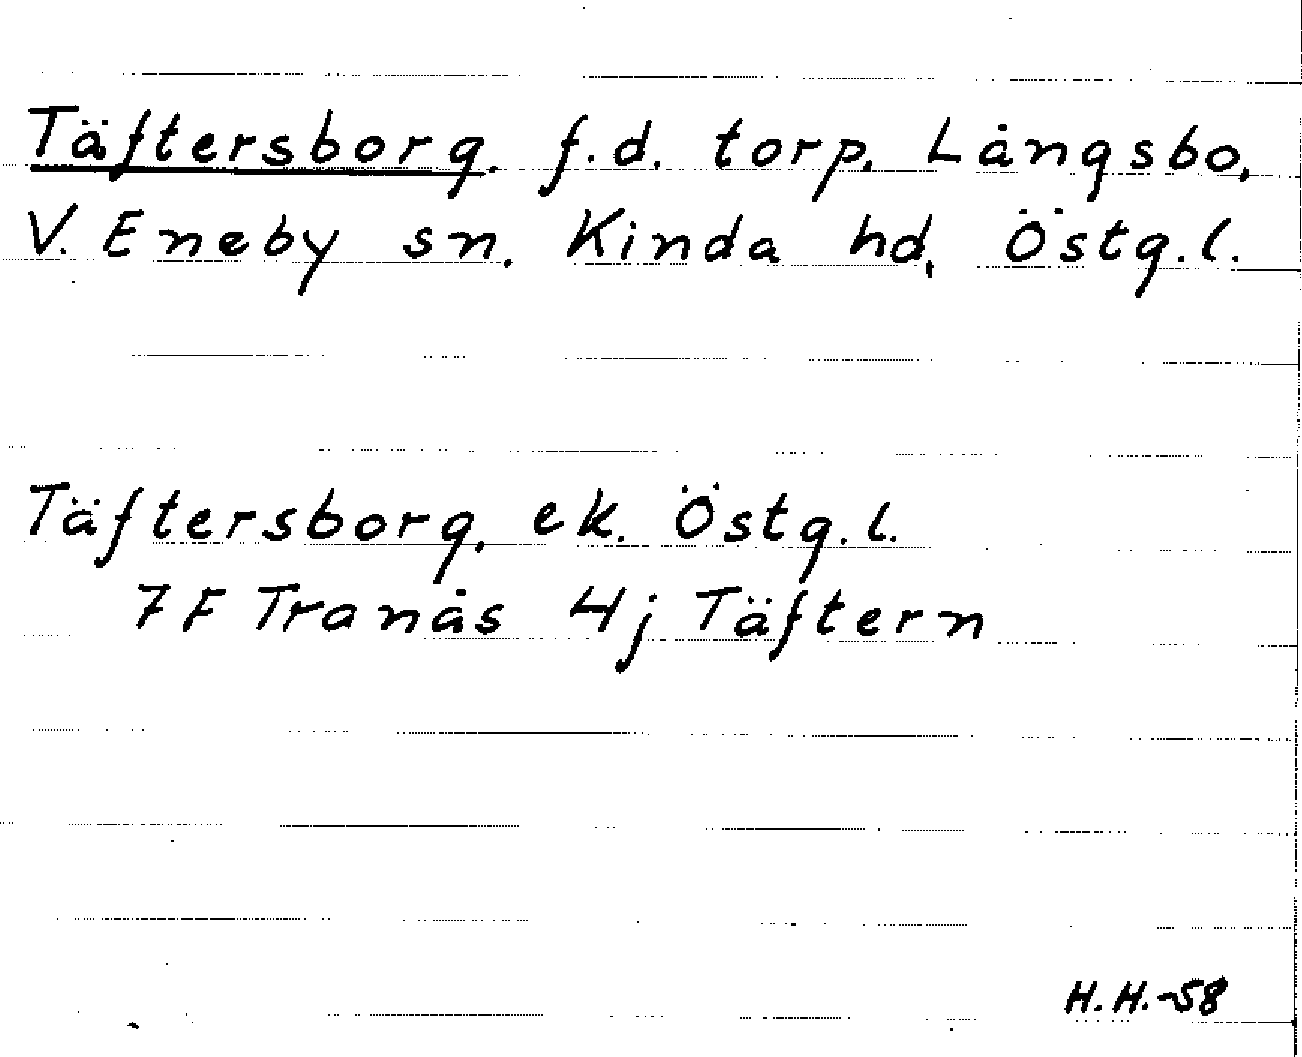 Täftersborg. f.d. torp. Långsbo,
V. Eneby sn. Kinda hd, Östg.l.
Täftersborg, ek. Östg.l.
7F Tranås 4j Täftern
H.H.-58